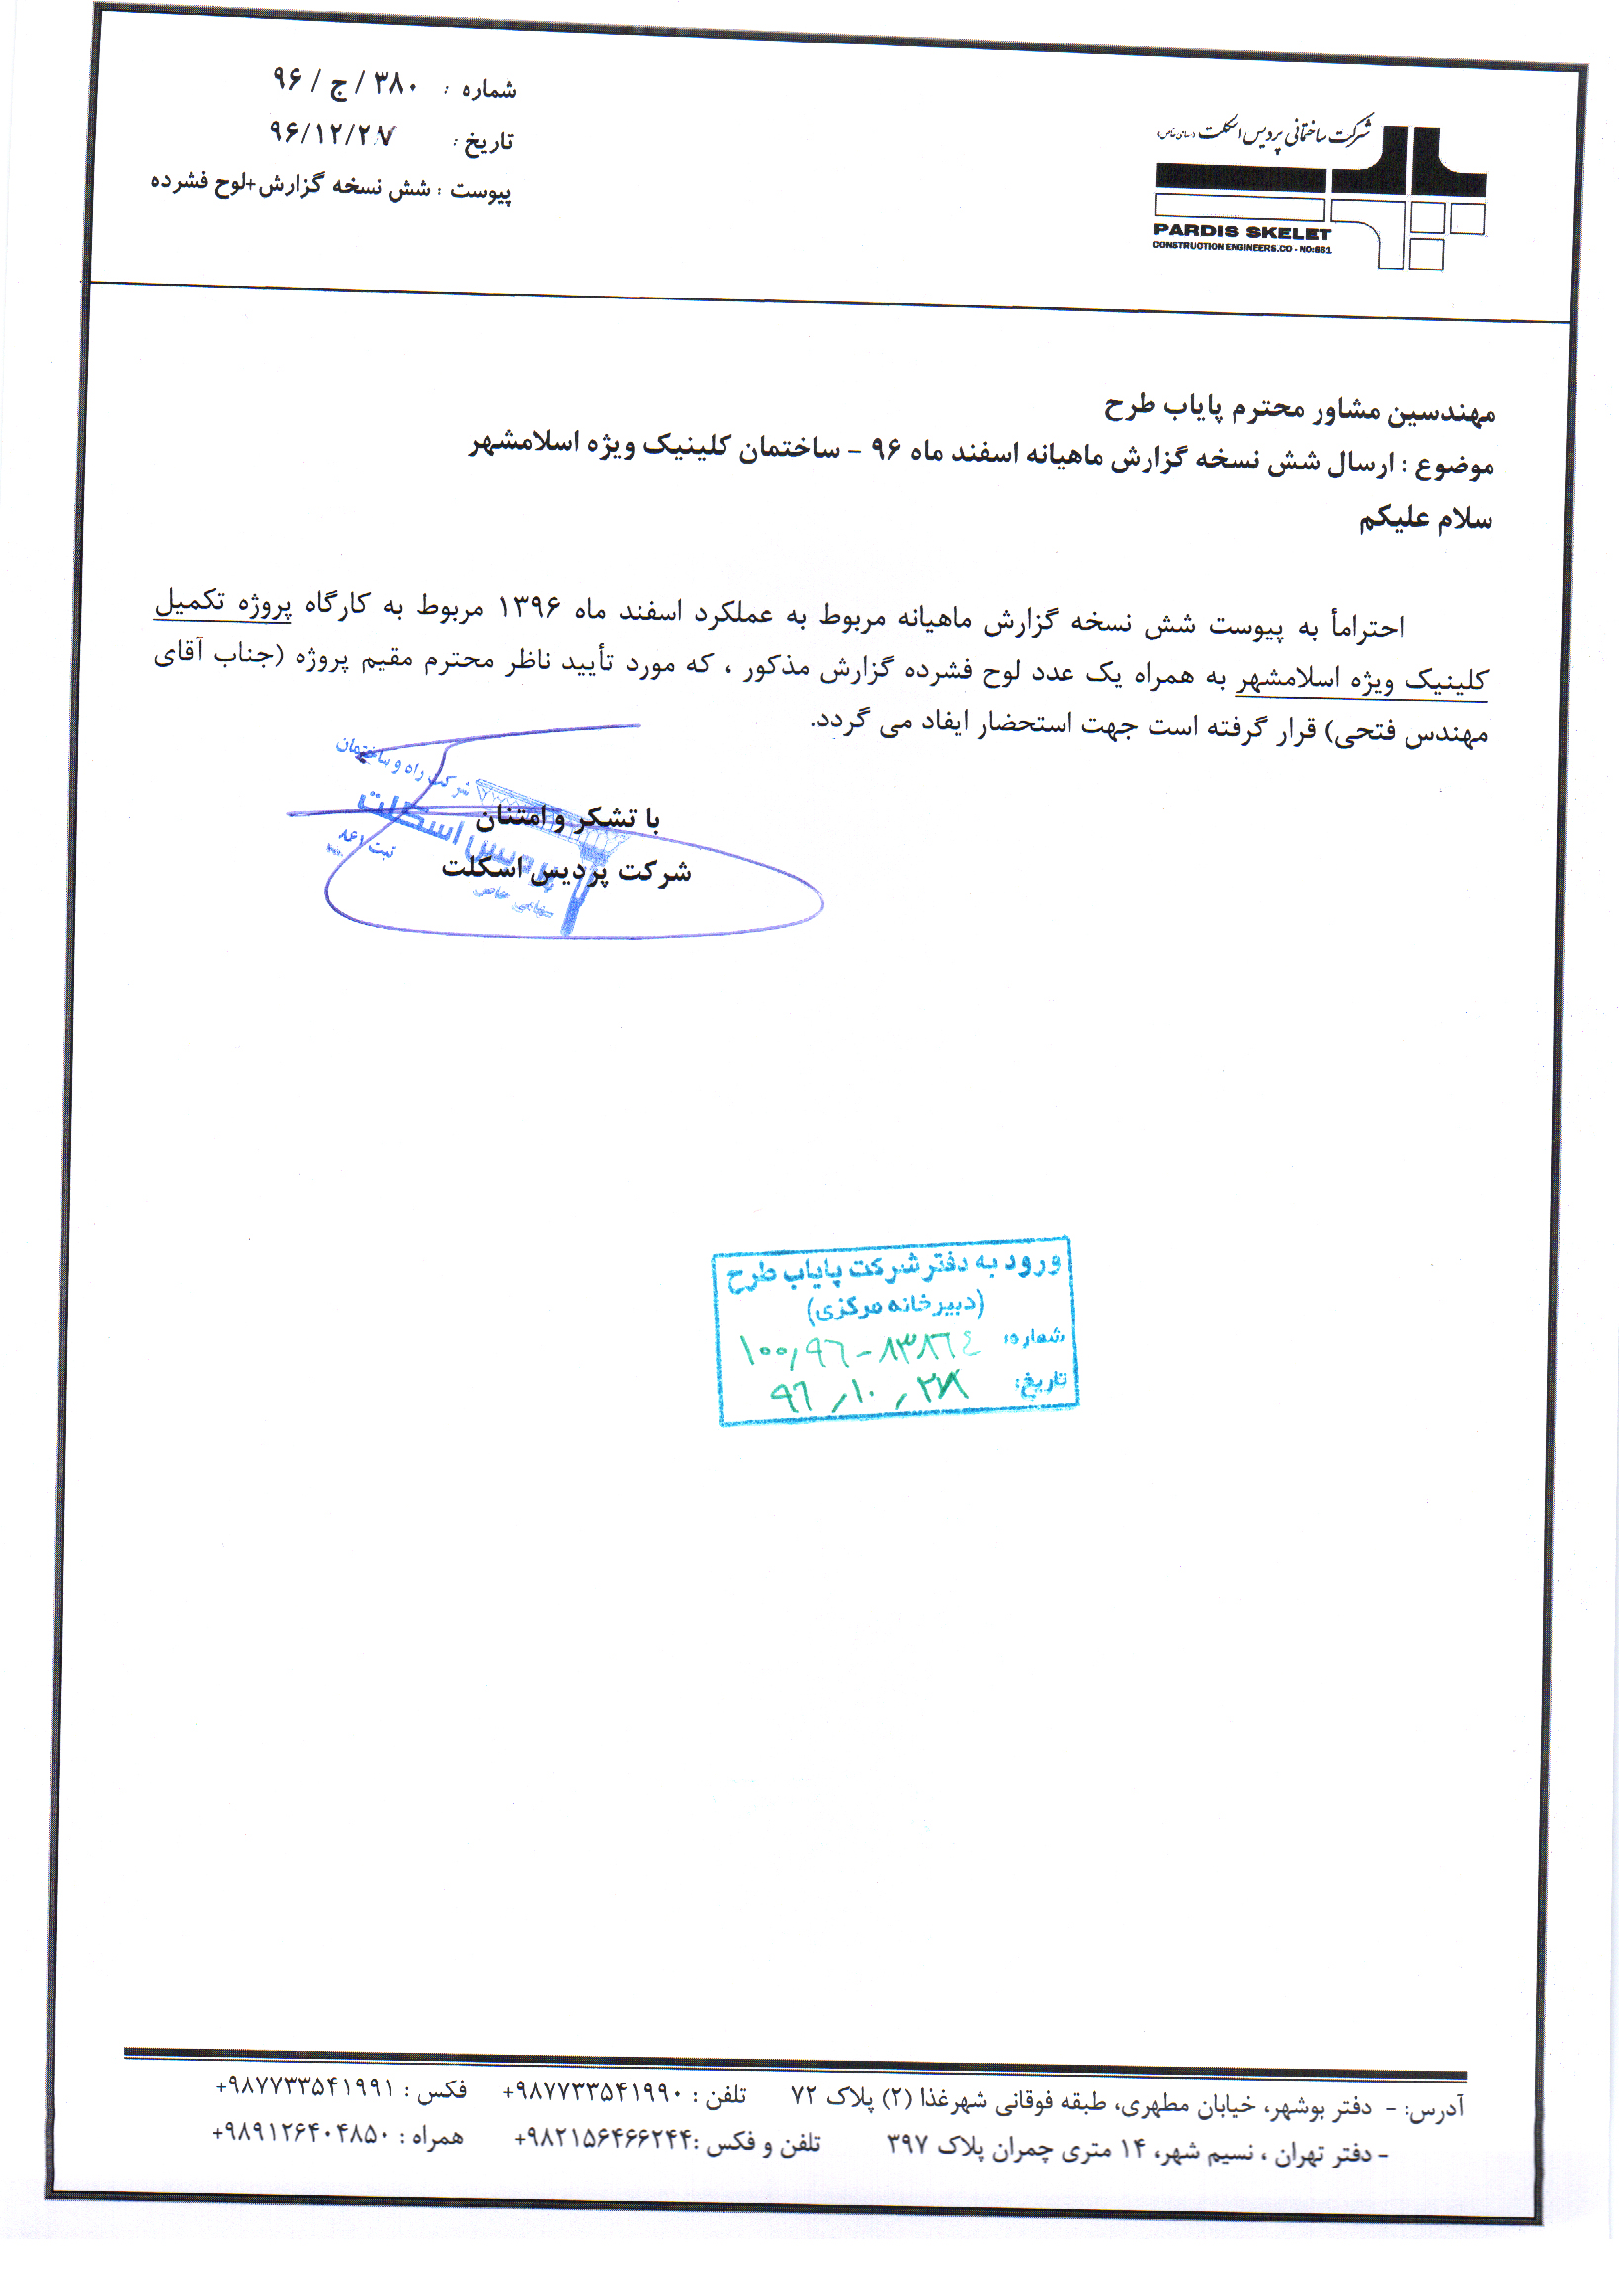 شرکت ساختمانی پردیس اسکلت (سهامی خاص)
PARDIS SKELET
CONSTRUCTION ENGINEERS.CO - NO:661
شماره : ۳۸۰ / ج / ۹۶
تاریخ : ۹۶/۱۲/۲۷
پیوست : شش نسخه گزارش+لوح فشرده
مهندسین مشاور محترم پایاب طرح
موضوع : ارسال شش نسخه گزارش ماهیانه اسفند ماه ۹۶ – ساختمان کلینیک ویژه اسلامشهر
سلام علیکم
احتراماً به پیوست شش نسخه گزارش ماهیانه مربوط به عملکرد اسفند ماه ۱۳۹۶ مربوط به کارگاه پروژه تکمیل
کلینیک ویژه اسلامشهر به همراه یک عدد لوح فشرده گزارش مذکور ، که مورد تأیید ناظر محترم مقیم پروژه (جناب آقای
مهندس فتحی) قرار گرفته است جهت استحضار ایفاد می گردد.
با تشکر و امتنان
شرکت پردیس اسکلت
شرکت راه و ساختمان
پردیس اسکلت
سهامی خاص
ثبت
ورود به دفتر شرکت پایاب طرح
(دبیرخانه مرکزی)
شماره: ۱۰۰٫۹۶-۸۳۸۶۴
تاریخ: ۹۶٫۱۰٫۲۸
آدرس: - دفتر بوشهر، خیابان مطهری، طبقه فوقانی شهرغذا (۲) پلاک ۷۲ تلفن : ۹۸۷۷۳۳۵۴۱۹۹۰+ فکس : ۹۸۷۷۳۳۵۴۱۹۹۱+
- دفتر تهران ، نسیم شهر، ۱۴ متری چمران پلاک ۳۹۷ تلفن و فکس :۹۸۲۱۵۶۴۶۶۲۴۴+ همراه : ۹۸۹۱۲۶۴۰۴۸۵۰+